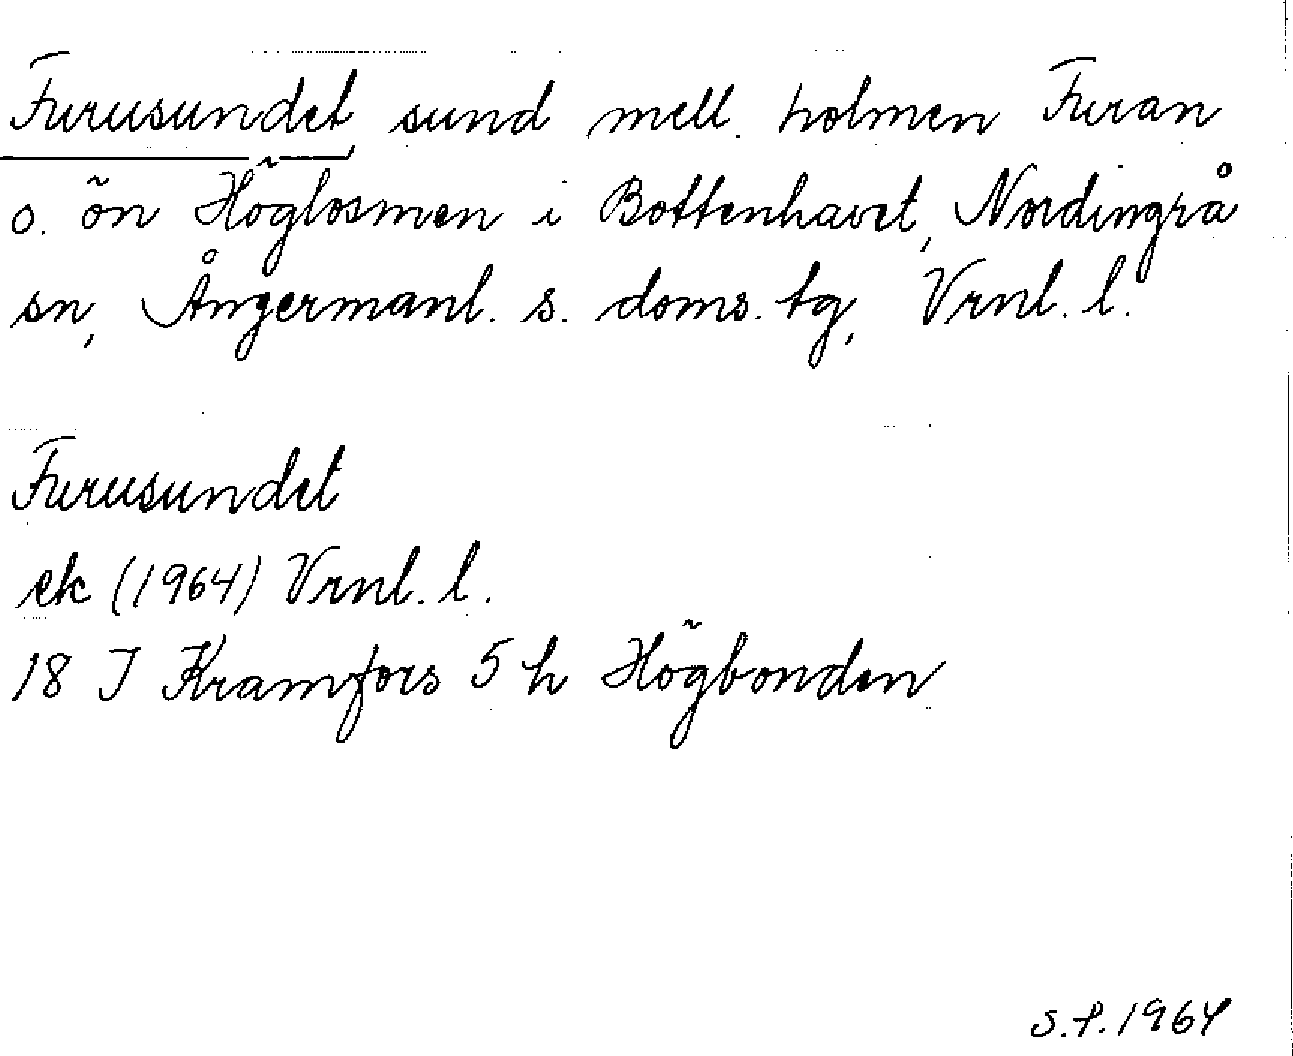 Furusundet, sund mell. holmen Furan
o. ön Höglosmen i Bottenhavet, Nordingrå
sn, Ångermanl. s. doms. tg, Vrnl. l.
Furusundet
ek (1964) Vrnl. l.
18 I Kramfors 5 h Högbonden
S.P. 1964